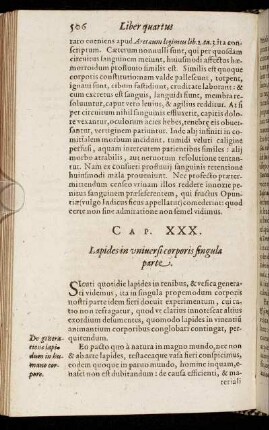 506 Liber quartus
raro coeniens apud Aretæum legimus lib. 2. cap. 3. ita conscriptum.
Cæterum nonnulli sunt, qui per quosdam
circuitus sanguinem meiunt, huiusmodi affectus hæmorrhoidum
profluuio similis est. Similis est quoque
corporis constitutio: nam valde pallescunt, torpent,
ignaui sunt, cibum fastidiunt, crudicate laborant: &
cum excretus est sanguis, languidi sunt, membra resoluuntur,
caput vero leuius, & agilius redditur. At si
per circuitum nihil sanguinis effluxerit, capitis dolore
vexantur, oculorum acies hebes, tenebræ eis obuersantur,
vertiginem patiuntur. Inde
comitialem morbum incidunt, tumidi veluti caligine
perfusi, aquam inter cutem patientibus similes: alij
atrabilis
tantur. Nam ex consueti profluuij sanguinis retentione
huiusmodi mala proueniunt. Nec profecto prætermittendum
censeo vrinam illos reddere innoxie penitus
sanguinem præseferentem, qui fructus Opuntiæ
(vulgo Indicas ficus appellant) comederint: quod
certe non sine admiratione non semel vidimus.
CAP. XXX.
Lapides in vniuersi corporis singula
parte.
Sicuti quotidie lapides in renibus, & vesica generari
videmus, ita in singula propemodum corporis
nostri parte idem fieri docuit experimentum, cui ratio
non refragatur, quod vt clarius innotescat altius
exordium desumentes, quomodo lapides in vniuersi
animantium corporibus conglobari contingat, perquirendum.
De generatione
lapidum
in humano
corpore.
Eo pacto quo à natura in magno mundo, nec non
& ab arte lapides, testaceaque vasa fieri conspicimus,
eodem quoque in paruo mundo, homine inquam, enasci
non est dubitandum: de causa efficienti, & materiali